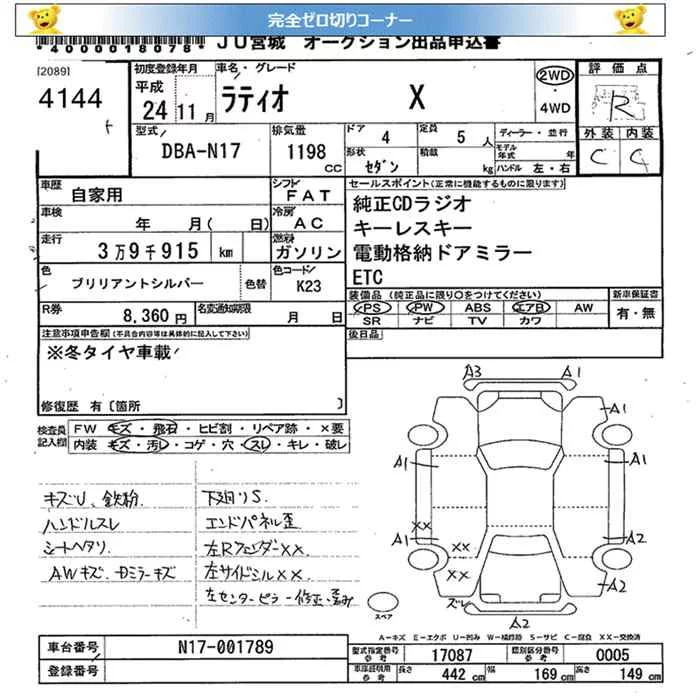 完全ゼロ切りコーナー
*4000018078* JU宮城 オークション出品申込書
[2089]
4144
初度登録年月
平成
24 11月
車名・グレード
ラティオ X
2WD
4WD
評価点
R
外装 内装
C C
型式
DBA-N17
排気量
1198 CC
ドア 4
定員 5人
形状 セダン
積載 kg
ディーラー・並行
モデル年式 年
ハンドル 左・右
車歴 自家用
シフト FAT
車検 年 月( 日)
冷房 AC
走行 3万9千915 km
燃料 ガソリン
色 ブリリアントシルバー 色替
色コード K23
R券 8,360円
名変通知期限 月 日
セールスポイント(正常に機能するものに限ります)
純正CDラジオ
キーレスキー
電動格納ドアミラー
ETC
装備品 (純正品に限り○をつけてください)
PS PW ABS エアB AW
SR ナビ TV カワ
新車保証書
有・無
後日品
注意事項申告欄(不具合内容等は具体的に記入して下さい)
※冬タイヤ車載
修復歴 有〔箇所 〕
検査員記入欄
FW キズ・飛石・ヒビ割・リペア跡・×要
内装 キズ・汚レ・コゲ・穴・スレ・キレ・破レ
キズU、鉄粉.
ハンドルスレ
シートヘタリ
AWキズ.Dミラーキズ
下廻りS.
エンドパネル歪
左Rフェンダー××
左サイドシル××
左センターピラー修正、歪み
A3 A1
A1
A1 A1
××
A1 A2
××
××
A2
ズレ
A2
スペア
A－キズ E－エクボ U－凹み W－補修跡 S－サビ C－腐食 XX－交換済
車台番号 N17-001789
登録番号
型式指定番号 参考 17087
類別区分番号 参考 0005
車庫証明用 参考 長さ 442 cm 幅 169 cm 高さ 149 cm